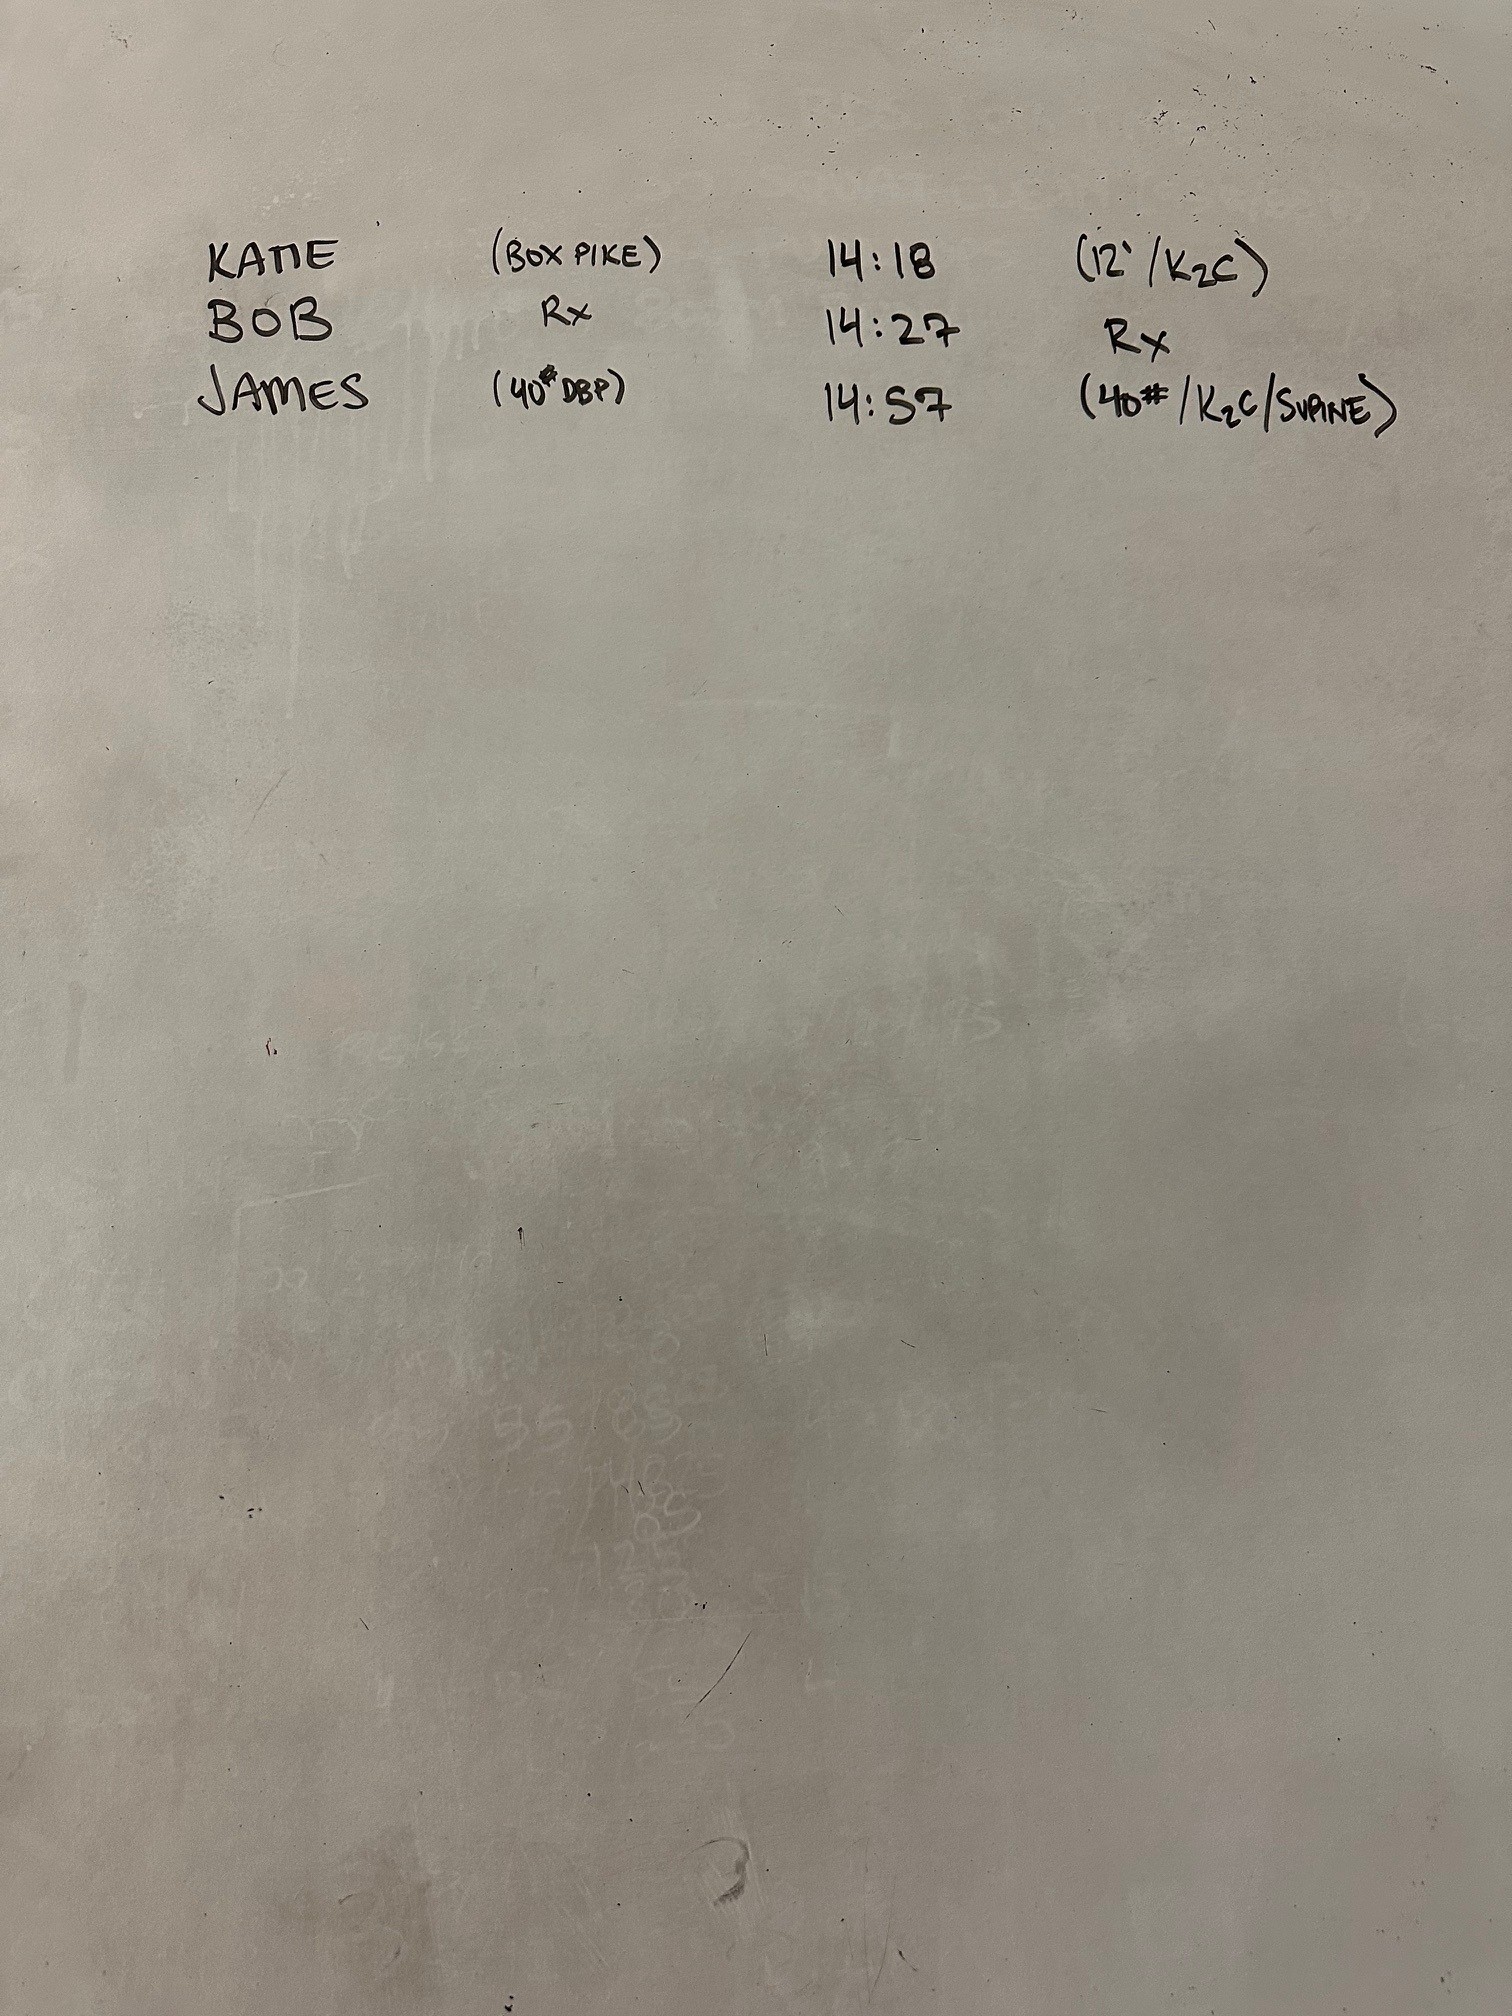 KATIE (BOX PIKE) 14:18 (12' / K2C)
BOB Rx 14:27 Rx
JAMES (40# DBP) 14:57 (40# / K2C / SUPINE)